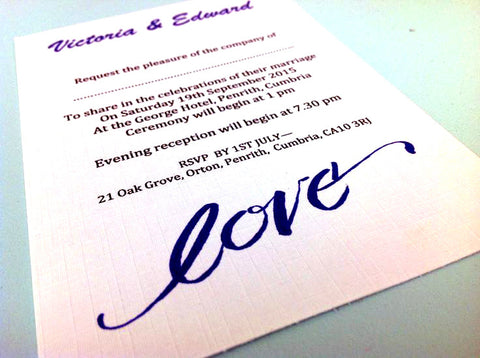 Victoria & Edward
Request the pleasure of the company of
To share in the celebrations of their marriage
On Saturday 19th September 2015
At the George Hotel, Penrith, Cumbria
Ceremony will begin at 1 pm
Evening reception will begin at 7.30 pm
RSVP BY 1ST JULY—
21 Oak Grove, Orton, Penrith, Cumbria, CA10 3RJ
love